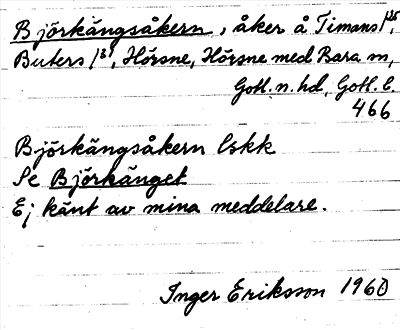 Björkängsåkern, åker å Timans 1/25,
Buters 1/3, Hörsne, Hörsne med Bara sn,
Gotl. n. hd, Gotl. l.
466
Björkängsåkern lskk
Se Björkänget
Ej känt av mina meddelare.
Inger Eriksson 1960